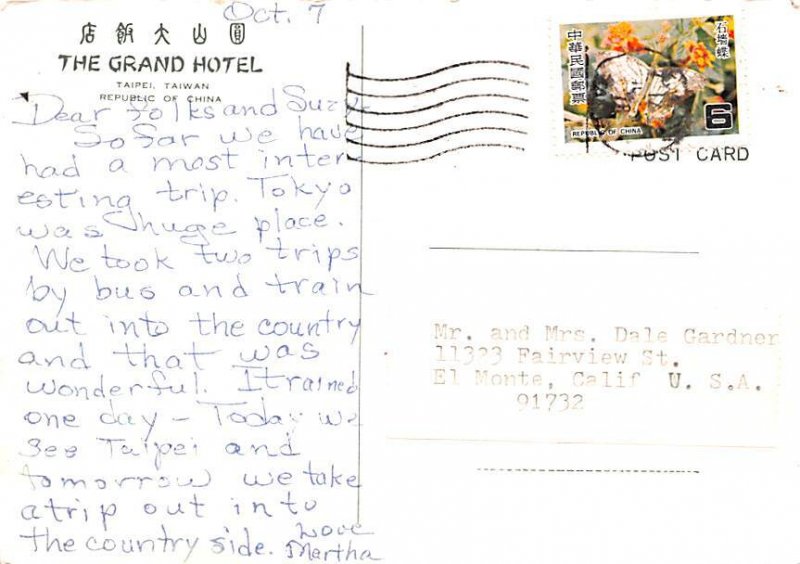 Oct. 7
店飯大山圓
THE GRAND HOTEL
TAIPEI, TAIWAN
REPUBLIC OF CHINA
Dear folks and Suzy
So far we have
had a most inter
esting trip. Tokyo
was huge place.
We took two trips
by bus and train
out into the country
and that was
wonderful. It rained
one day - Today we
see Taipei and
tomorrow we take
a trip out into
the country side. Love
Martha
中華民國郵票
石墻蝶
6
REPUBLIC OF CHINA
POST CARD
Mr. and Mrs. Dale Gardner
11323 Fairview St.
El Monte, Calif U. S.A.
91732